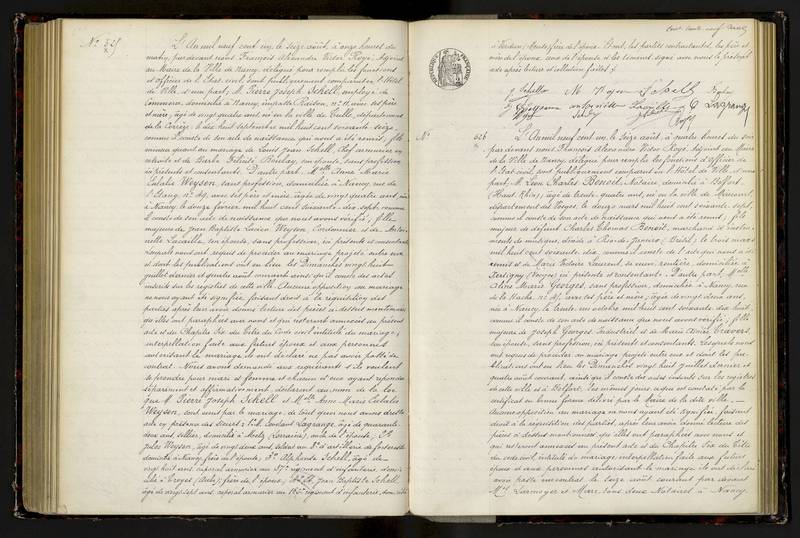 No 525
L'An mil neuf cent un, le Seize août, à onze heures du
matin, par devant nous François Alexandre Victor Royé, Adjoint
au Maire de la Ville de Nancy, délégué pour remplir les fonctions
d'officier de l'Etat civil sont publiquement comparus en l'Hôtel
de Ville, d'une part, M. Pierre Joseph Schell, employé de
Commerce, domicilié à Nancy, impasse
âgé de vingt quatre ans, né en la ville de Tulle, département
de la Corrèze, le dix huit septembre mil huit cent soixante seize
comme il conste de son acte de naissance qui nous a été remis, fils
mineur quant au mariage de Louis Jean Schell, Chef armurier en
retraite et de Barbe Félicité Boulay, son épouse, sans profession
ici présents et consentants. D'autre part, Melle Anne Marie
Eulalie Weyson, sans profession, domiciliée à Nancy, rue de
l'Etang, no 49, avec ses père et mère, âgée de vingt quatre ans, née
à Nancy le douze février mil huit cent soixante dix sept, comme
il conste de son acte de naissance que nous avons vérifié, fille
majeure de Jean Baptiste Lucien Weyson, Cordonnier et de
Lacaille, son épouse, sans profession, ici présents et consentants
Lesquels nous ont requis de procéder au mariage projeté entre eux
et dont les publications ont eu lieu les Dimanches vingt huit
juillet dernier et quatre août courant ainsi qu'il conste des actes
inscrits sur les registres de cette ville. Aucune opposition au mariage
ne nous ayant été signifiée, faisant droit à la réquisition des
parties après leur avoir donné lecture des pièces ci dessus mentionnées
qu'elles ont paraphées avec nous et qui resteront annexées au présent
acte et du Chapitre Six du titre du Code civil intitulé du mariage,
interpellation faite aux futurs époux et aux personnes
autorisant le mariage, ils ont déclaré ne pas avoir passé de
contrat. Nous avons demandé aux requérants s'ils veulent
se prendre pour mari et femme et chacun d'eux ayant répondu
séparément et affirmativement, déclarons au nom de la loi
que M. Pierre Joseph Schell et Melle Anne Marie Eulalie
Weyson, sont unis par le mariage, de tout quoi nous avons dressé
acte en présence des Sieurs: Constant Lagrange, âgé de quarante
deux ans, sellier, domicilié à Metz (Lorraine), oncle de l'épouse; 2o
Jules Weyson, âgé de vingt deux ans, soldat au 8e d'artillerie de forteresse
domicilié à Nancy, frère de l'épouse; 3o Alphonse Schell, âgé de
vingt huit ans, caporal armurier au 37e régiment d'infanterie, domi-
cilié à Troyes (Aube), frère de l'époux; 4o Jean Baptiste Schell
âgé de vingt sept ans, caporal armurier au régiment d'infanterie, domicilié
à Verdun (Meuse) frère de l'époux. Et ont, les parties contractantes, les père et
mère des époux et les témoins signé avec nous le présent
acte après lecture et collation faites.
J Schell M Weyson Schell
Lacaille C Lagrange
Royé
No 526
L'An mil neuf cent un, le Seize août, à quatre heures du soir
par devant nous François Alexandre Victor Royé, Adjoint au Maire
de la Ville de Nancy, délégué pour remplir les fonctions d'officier de
l'Etat civil, sont publiquement comparus en l'Hôtel de Ville, d'une
part, M. Léon Charles Benoit, Notaire, domicilié à Belfort
(Haut Rhin), âgé de trente quatre ans, né en la ville de Mirecourt,
département des Vosges, le douze mars mil huit cent soixante sept,
comme il conste de son acte de naissance qui nous a été remis; fils
majeur de défunt Charles Thomas Benoit, marchand d'instru-
ments de musique, décédé à Rio de Janeiro (Brésil), le trois mars
mil huit cent soixante dix, comme il conste de l'acte qui nous a été
remis et de Marie Laurent, sa veuve, rentière, domiciliée à
(Vosges) ici présente et consentante. D'autre part, Melle
Aline Marie Georges, sans profession, domiciliée à Nancy, rue
de la Hache, no 57, avec ses père et mère, âgée de vingt deux ans,
née à Nancy, le trente un octobre mil huit cent soixante dix huit
comme il conste de son acte de naissance que nous avons vérifié, fille
majeure de Joseph Georges Industriel et de Marie Anne Travers,
son épouse, sans profession, ici présents et consentants. Lesquels nous
ont requis de procéder au mariage projeté entre eux et dont les pu-
blications ont eu lieu les Dimanches vingt huit juillet dernier et
quatre août courant ainsi qu'il conste des actes inscrits sur les registres
de cette ville et à Belfort, les mêmes jours ce qui est constaté par le
certificat en bonne forme délivré par le Maire de la dite ville.
Aucune opposition au mariage ne nous ayant été signifiée, faisant
droit à la réquisition des parties, après leur avoir donné lecture des
pièces ci dessus mentionnées, qu'elles ont paraphées avec nous et
qui resteront annexées au présent acte et du Chapitre Six du titre
du Code civil intitulé du mariage interpellation faite aux futurs
époux et aux personnes autorisant le mariage, ils ont déclaré
avoir passé un contrat le seize août courant par devant
Mes Larmoyer et Marc, tous deux Notaires à Nancy.